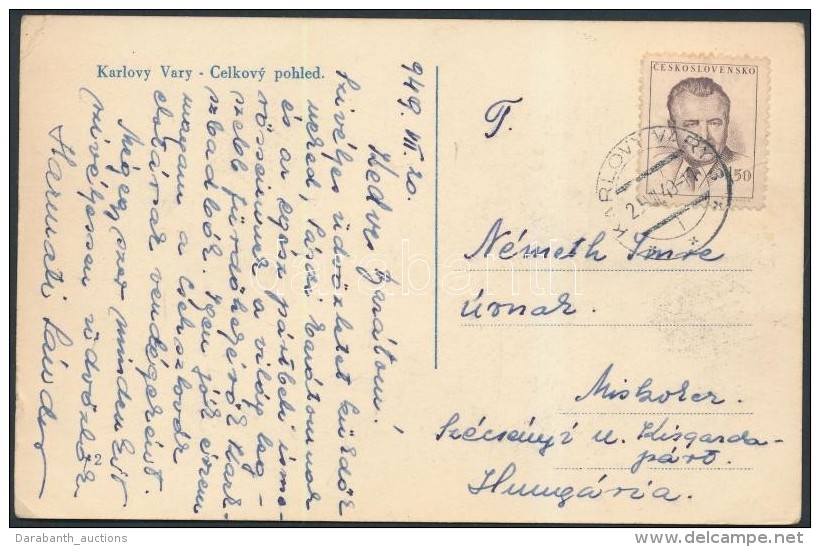 Karlovy Vary - Celkový pohled.
949. VII. 20.
Kedves Barátom!
Szivélyes üdvözletet küldök
neked, Pásári barátomnak
és az egész pártbeli isme-
rőseimnek a világ leg-
szebb fürdőhelyéről Karl-
szbadból. Igen jól érzem
magam a Csehszlovák
elvtársak vendégeként.
Mégegyszer mindenkit
szivélyessen üdvözlök.
Harmati Sándor
2
ČESKOSLOVENSKO
1.50
KARLOVY VARY
T.
Németh Imre
úrnak.
Miskolcz.
Szécsényi u. Kisgazda-
párt.
Hungária.
darabanth
Darabanth_auctions
www.delcampe.net